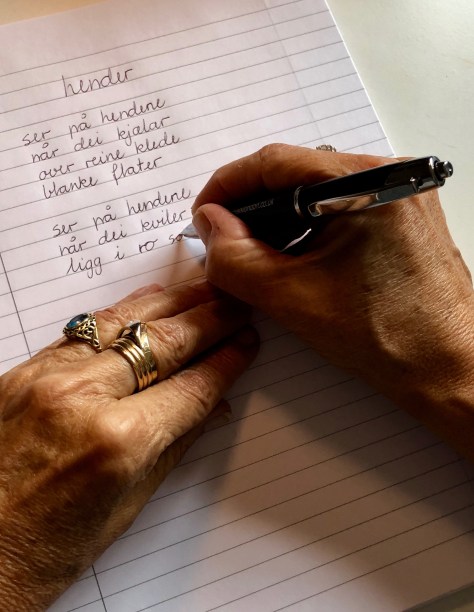 hender
ser på hendene
når dei kjælar
over reine klede
blanke flater
ser på hendene
når dei kviler
ligg i ro so